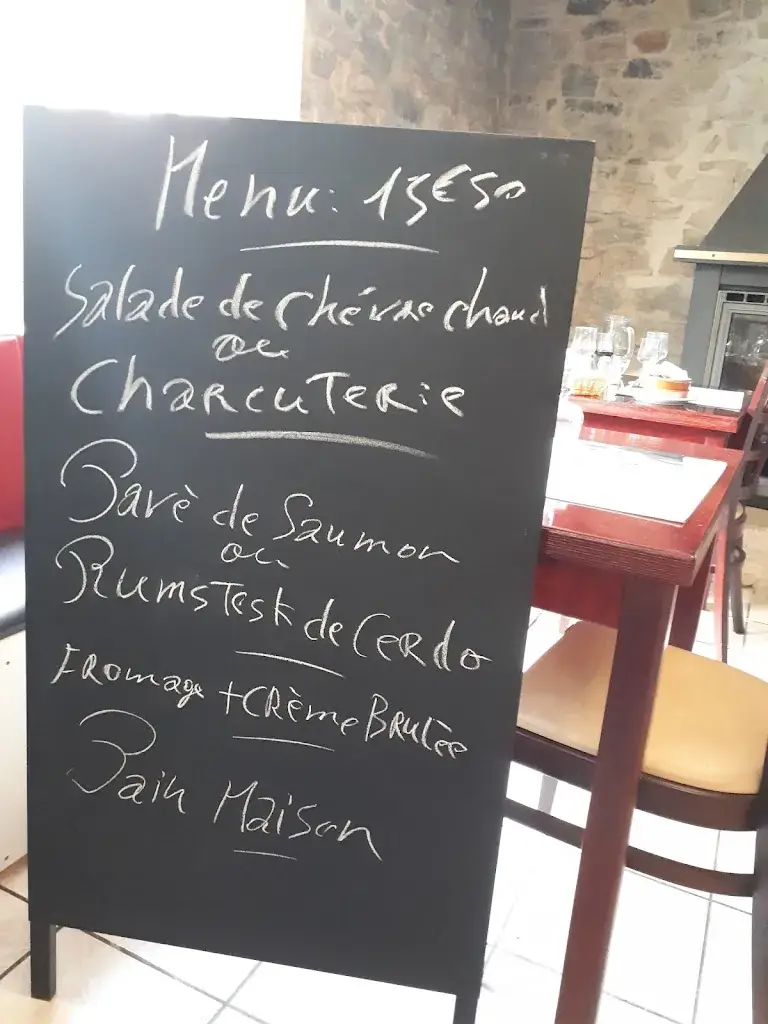 Menu: 13€50
Salade de chévre chaud
ou
Charcuterie
Pavè de Saumon
ou
Rumstesk de Cerdo
Fromage + Crème Brulée
Pain Maison